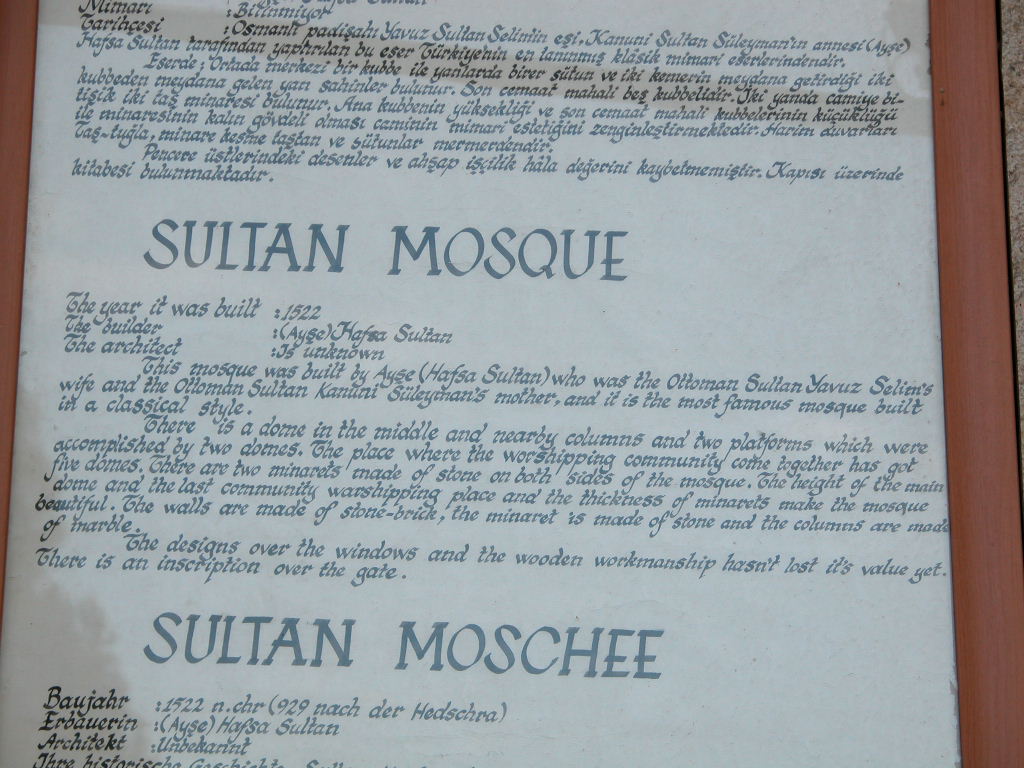 Mimarı :Bilinmiyor
Tarihçesi :Osmanlı padişahı Yavuz Sultan Selim'in eşi, Kanuni Sultan Süleyman'ın annesi (Ayşe)
Hafsa Sultan tarafından yaptırılan bu eser Türkiye'nin en tanınmış klâsik mimari eserlerindendir.
Eserde; Ortada merkezi bir kubbe ile yanlarda birer sütun ve iki kemerin meydana getirdiği iki
kubbeden meydana gelen yan sahınler bulunur. Son cemaat mahali beş kubbelidir. İki yanda camiye bi-
tişik iki taş minaresi bulunur. Ana kubbenin yüksekliği ve son cemaat mahali kubbelerinin küçüklüğü
ile minaresinin kalın gövdeli olması caminin mimari estetiğini zenginleştirmektedir. Harim duvarları
Taş-tuğla, minare kesme taştan ve sütunlar mermerdendir.
Pencere üstlerindeki desenler ve ahşap işçilik hâla değerini kaybetmemiştir. Kapısı üzerinde
kitabesi bulunmaktadır.
SULTAN MOSQUE
The year it was built :1522
The builder :(Ayşe) Hafsa Sultan
The architect :Is unknown
This mosque was built by Ayşe (Hafsa Sultan) who was the Ottoman Sultan Yavuz Selim's
wife and the Ottoman Sultan Kanuni Süleyman's mother, and it is the most famous mosque built
in a classical style.
There is a dome in the middle and nearby columns and two platforms which were
accomplished by two domes. The place where the worshipping community come together has got
five domes. There are two minarets made of stone on both sides of the mosque. The height of the main
dome and the last community warshipping place and the thickness of minarets make the mosque
beautiful. The walls are made of stone-brick, the minaret is made of stone and the columns are made
of marble.
The designs over the windows and the wooden workmanship hasn't lost it's value yet.
There is an inscription over the gate.
SULTAN MOSCHEE
Baujahr :1522 n.chr (929 nach der Hedschra)
Erbauerin :(Ayşe) Hafsa Sultan
Architekt :Unbekannt
Ihre historische